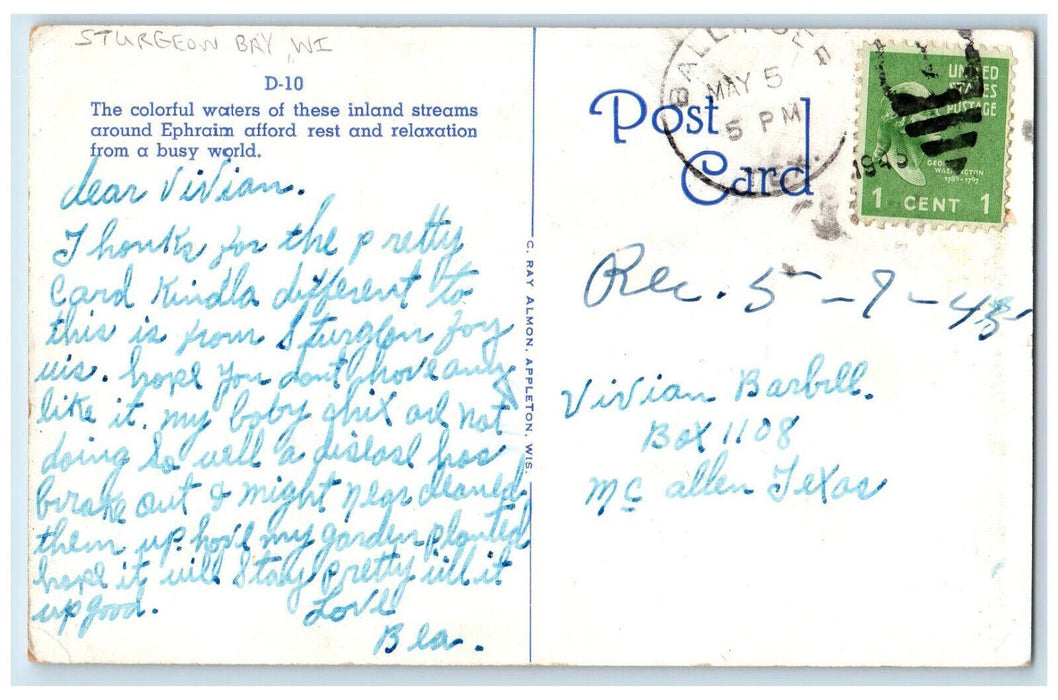 STURGEON BAY, WI
D-10
The colorful waters of these inland streams
around Ephraim afford rest and relaxation
from a busy world.
dear Vivian.
Thanks for the pretty
Card Kindla different to
this is from Sturgeon
wis. hope you dont have any
like it. my baby chix are not
doing so well a disease has
broke out & might near cleaned
them up. have my garden planted
hope it will stay pretty till it
up good.
Love
Bea.
C. RAY ALMON, APPLETON, WIS.
Post
Card
MAY 5
5 PM
1945
UNITED
STATES
POSTAGE
GEORGE
WASHINGTON
1789-1797
1 CENT 1
Rec. 5-7-45
Vivian Barbill.
Box 1108
Mc allen Texas